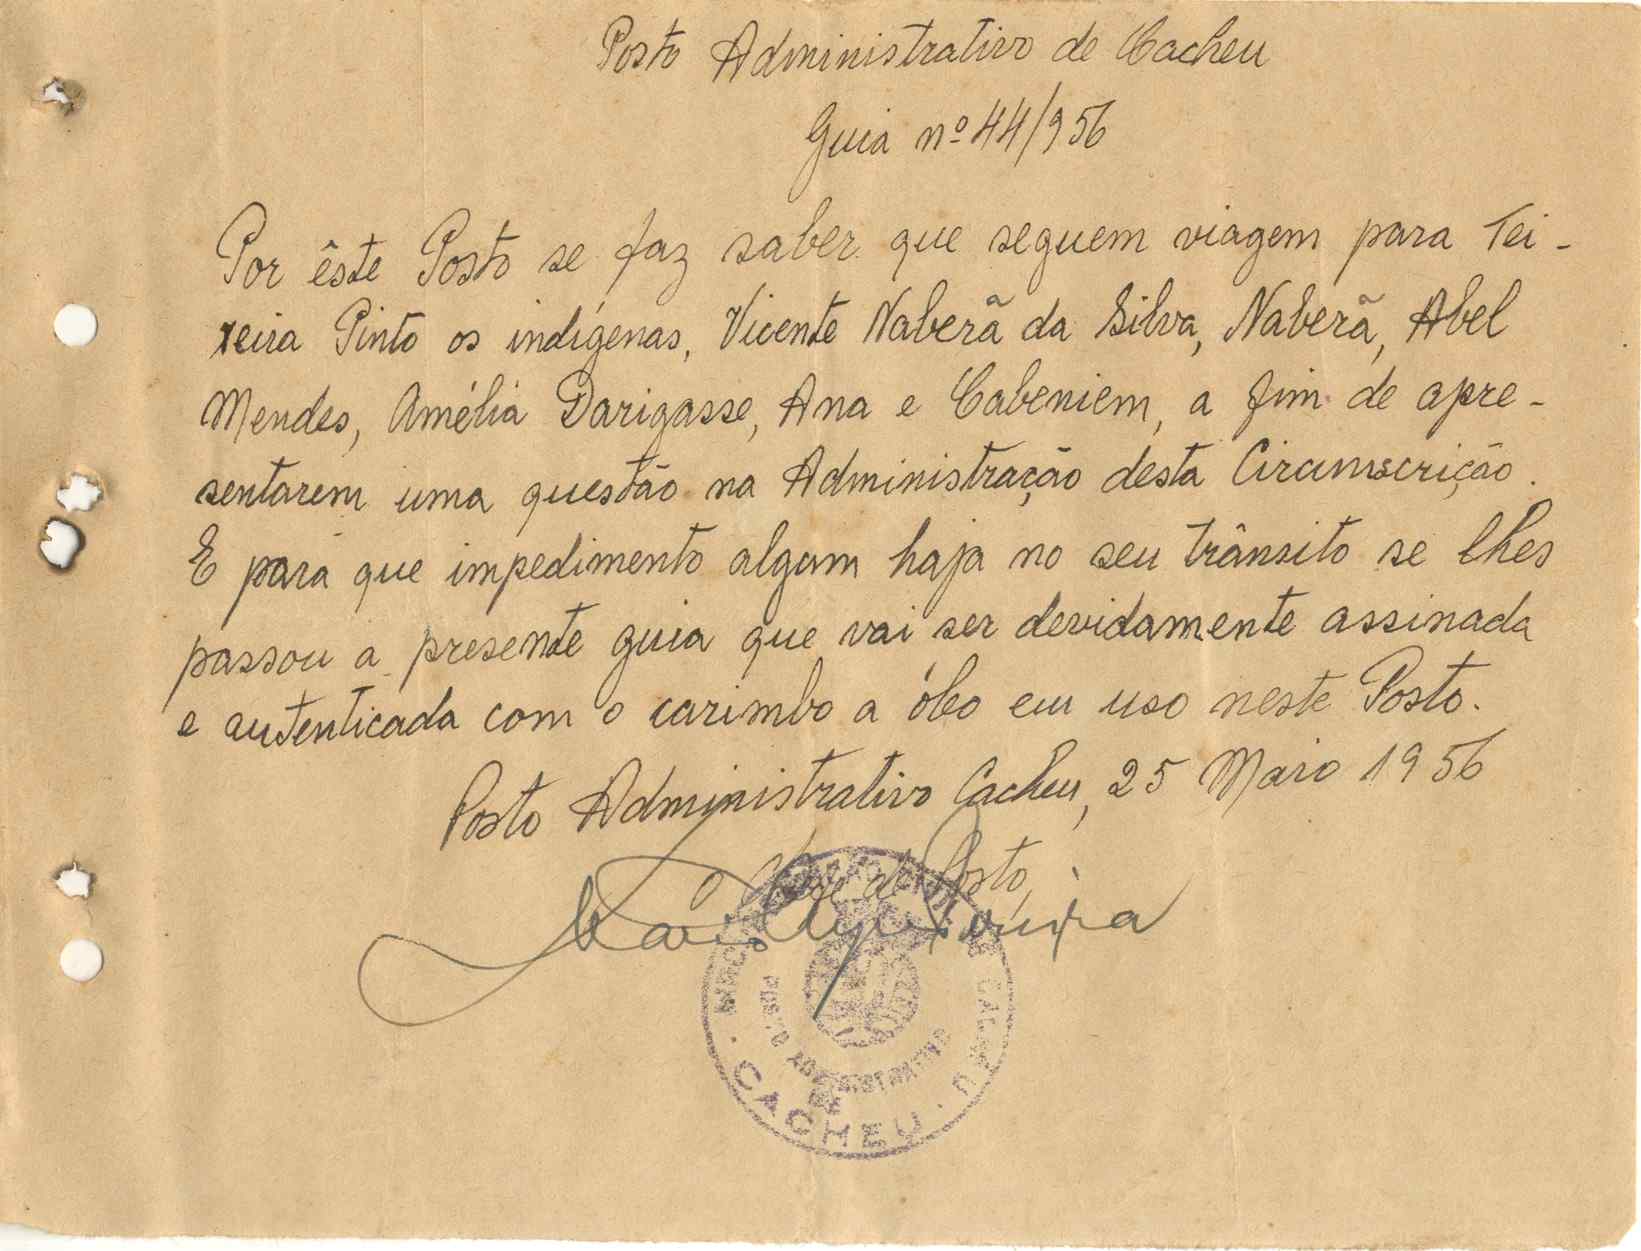 Posto Administrativo de Cacheu
Guia nº 44/956
Por êste Posto se faz saber que seguem viagem para Tei-
xeira Pinto os indígenas, Vicente Naberã da Silva, Naberã, Abel
Mendes, Amélia Darigasse, Ana e Cabeniem, a fim de apre-
sentarem uma questão na Administração desta Circunscrição.
E para que impedimento algum haja no seu trânsito se lhes
passou a presente guia que vai ser devidamente assinada
e autenticada com o carimbo a óleo em uso neste Posto.
Posto Administrativo Cacheu, 25 Maio 1956
O Chefe do Posto,
POSTO ADMINISTRATIVO
DE
CACHEU